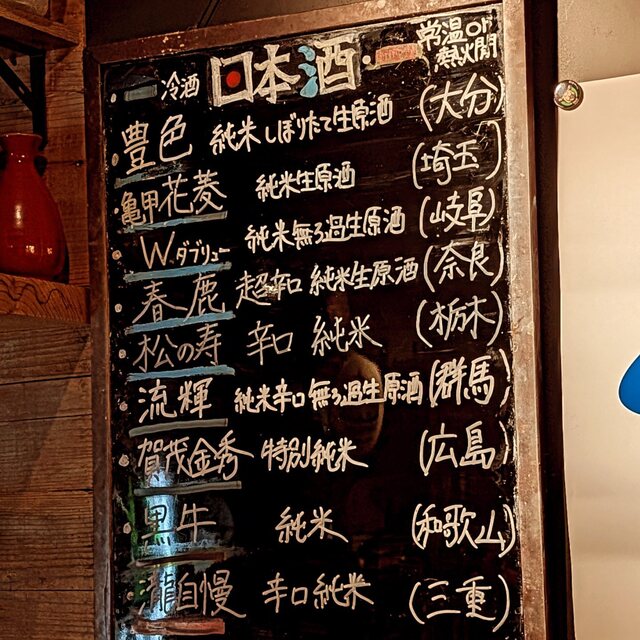 冷酒 日本酒 常温or熱燗
豊色 純米しぼりたて生原酒 (大分)
亀甲花菱 純米生原酒 (埼玉)
W.ダブリュー 純米無ろ過生原酒 (岐阜)
春鹿 超辛口 純米生原酒 (奈良)
松の寿 辛口 純米 (栃木)
流輝 純米辛口無ろ過生原酒 (群馬)
賀茂金秀 特別純米 (広島)
黒牛 純米 (和歌山)
瀧自慢 辛口純米 (三重)